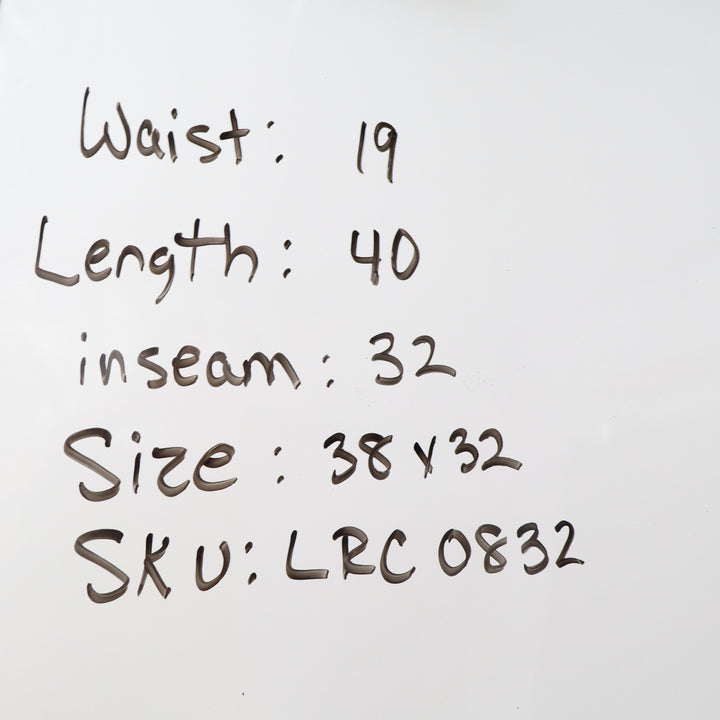 Waist: 19
Length: 40
inseam: 32
Size: 38x32
SKU: LRC 0832